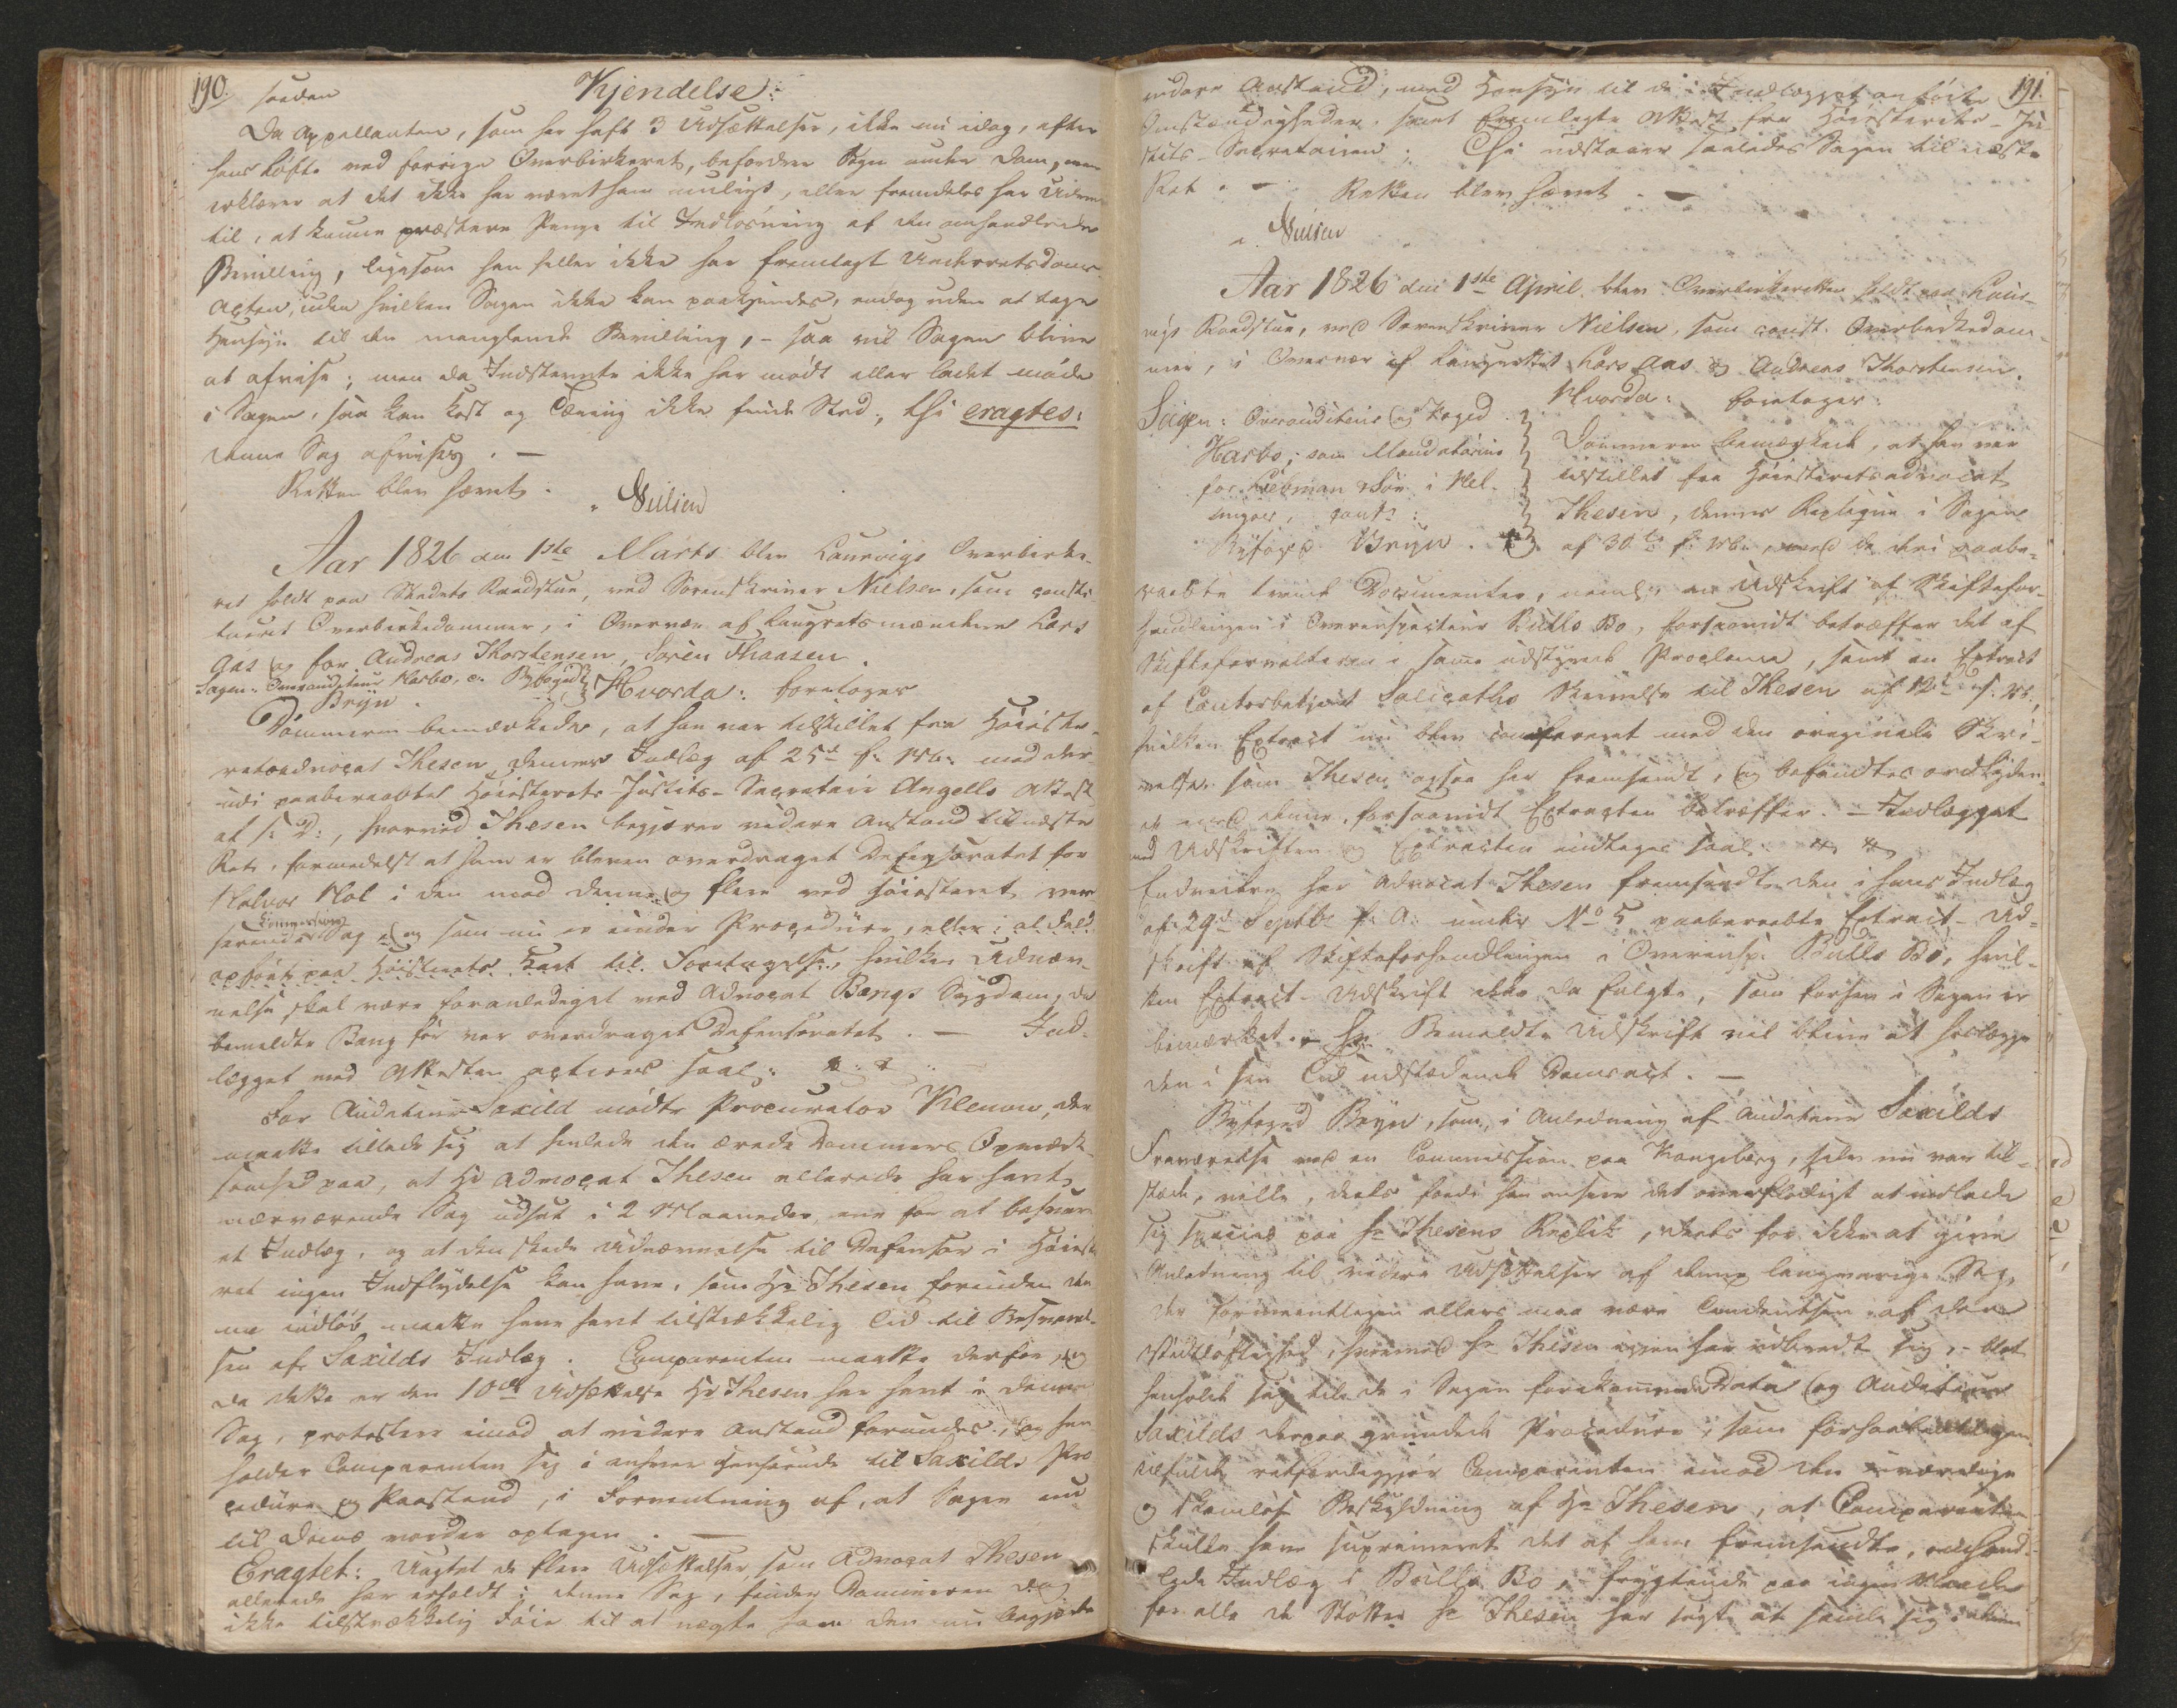 190.
saadan Kjendelse:
Da Appellanten, som har haft 3 Udsættelser, ikke nu idag, efter
hans Løfte ved forrige Overbirkeret, befordrer Sagen under Dom, men
erklærer at det ikke har været ham muligt, eller fremdeles har Udveie
til, at kunne præstere Penge til Indløsning af den omhandlede
Bevilling, ligesom han heller ikke har fremlagt Underretsdoms
Acten, uden hvilken Sagen ikke kan paakjendes, endog uden at tage
Hensyn til den manglende Bevilling, - saa vil Sagen blive
at afvise; men da Indstevnte ikke har mødt eller ladet møde
i Sagen, saa kan Kost og Tæring ikke finde Sted, thi eragtes:
denne Sag afvises. —
Retten blev hævet.
Nielsen
Aar 1826 den 1ste Marts blev Laurvigs Overbirke-
ret holdt paa Stedets Raadstue, ved Sorenskriver Nielsen, som consti-
tueret Overbirkedommer, i Overvær af Laugretsmændene Lars
Aas og for Andreas Thorstensen, Søren Thaasen.
Sagen: Overauditeur Harbo, c. Byfoged
Bryn. Hvorda: foretoges
Dommeren bemærkede, at han var tilstillet fra Høieste-
retsadvocat Thesen dennes Indlæg af 25d f: M: med der-
udi paaberaabtes Høiesterets Justits-Secretair Angells Attest
af s: D:, hvorved Thesen begjærer videre Anstand til næste
Ret, formedelst at ham er bleven overdraget Defensoratet for
Halvor Hol i den mod denne og flere ved Høiesteret ver-
serende Commissions Sag, og som nu er under Procedure, eller i al Fald
opført paa Høiesterets Kart til Foretagelse, hvilken Udnæv-
nelse skal være foranlediget ved Advocat Bangs Sygdom, da
bemeldte Bang før var overdraget Defensoratet. — Ind-
lægget med Attesten acteres saal:
For Auditeur Saxild mødte Procurator Klenow, der
maatte tillade sig at henlede den ærede Dommers Opmærk-
somhed paa, at Hr Advocat Thesen allerede har havt
nærværende Sag udsat i 2 Maaneder, ene for at besvare
et Indlæg, og at den skede Udnævnelse til Defensor i Høieste
ret ingen Indflydelse kan have, som Hr Thesen forinden den-
ne indløb maatte have havt tilstrækkelig Tid til Besvarel-
sen af Saxilds Indlæg. Comparenten maatte derfor, og
da dette er den 10de Udsættelse Hr Thesen har havt i denne
Sag, protestere imod at videre Anstand forundes, og hen-
holder Comparenten sig i enhver Henseende til Saxilds Pro
cedure og Paastand, i Forventning af, at Sagen nu
til Doms vorder optagen. —
Eragtet: Uagtet de flere Udsættelser, som Advocat Thesen
allerede har erholdt i denne Sag, finder Dommeren dog
ikke tilstrækkelig Føie til at nægte ham den nu begjærte
191.
videre Anstand, med Hensyn til de i Indlægget anførte
Omstændigheder, samt fremlagte Attest fra Høiesterets-Ju-
stits-Secretairen; Thi udstaaer saaledes Sagen til næste
Ret. — Retten blev hævet. —
Nielsen
Aar 1826 den 1ste April blev Overbirkeretten holdt paa Laur-
vigs Raadstue, ved Sorenskriver Nielsen, som const. Overbirkedom-
mer, i Overvær af Laugrettet Lars Aas og Andreas Thorstensen.
Hvorda: foretoges:
Sagen: Overauditeur og Foged
Harbo, som Mandatarius
for Liebman & Søn i Hel-
singør, contr:
Byfoged Bryn.
Dommeren bemærkede, at han var
tilstillet fra Høiesteretsadvocat
Thesen, dennes Replique i Sagen
af 30te f: M:, med de deri paabe-
raabte tvende Documenter, neml: en Udskrift af Skiftefor-
handlingen i Overinspecteur Bulls Bo, forsaavidt betræffer det af
Skifteforvalteren i samme udstedte Proclama, samt en Extract
af Contorbetjent Salicaths Skrivelse til Thesen af
hvilken Extract nu blev confereret med den originale Skri-
velse, som Thesen ogsaa har fremsendt, og befandtes ordlyden
de med denne, forsaavidt Extracten betræffer. - Indlægget
med Udskriften og Extracten indtages saal:
Endvidere har Advocat Thesen fremsendt den i hans Indlæg
af 29d Septbr f: A: under No 5 paaberaabte Extract-Ud-
skrift af Skifteforhandlingen i Overinsp: Bulls Bo, hvil-
ken Extract-Udskrift ikke da fulgte, som forhen i Sagen er
bemærket. Bemeldte Udskrift vil blive at hoslægge
den i sin Tid udstedende Domsact. —
Byfoged Bryn, som, i Anledning af Auditeur Saxilds
Fraværelse ved en Commission paa Kongsberg, selv nu var til-
stæde, vilde, deels fordi han ansaae det overflødigt at indlade
sig specielt paa Hr Thesens Replik, deels for ikke at give
Anledning til videre Udsættelser af denne langvarige Sag,
der formeentligen allers maa være
Vidtløftighed, hvormed Hr Thesen igjen har udbredt sig, - blot
henholde sig til de i Sagen forekommende Data og Auditeur
Saxilds derpaa grundede Procedure, som forhaabentligen
tilfulde retfærdiggjør Comparenten imod den uværdige
og skamløse Beskyldning af Hr Thesen, at Comparenten
skulle have supprimeret det af ham fremsendte, omhand-
lede Indlæg i Bulls Bo, frygtende paa ingen Maade
for alle de Støtter Hr Thesen har søgt at samle sig i denne